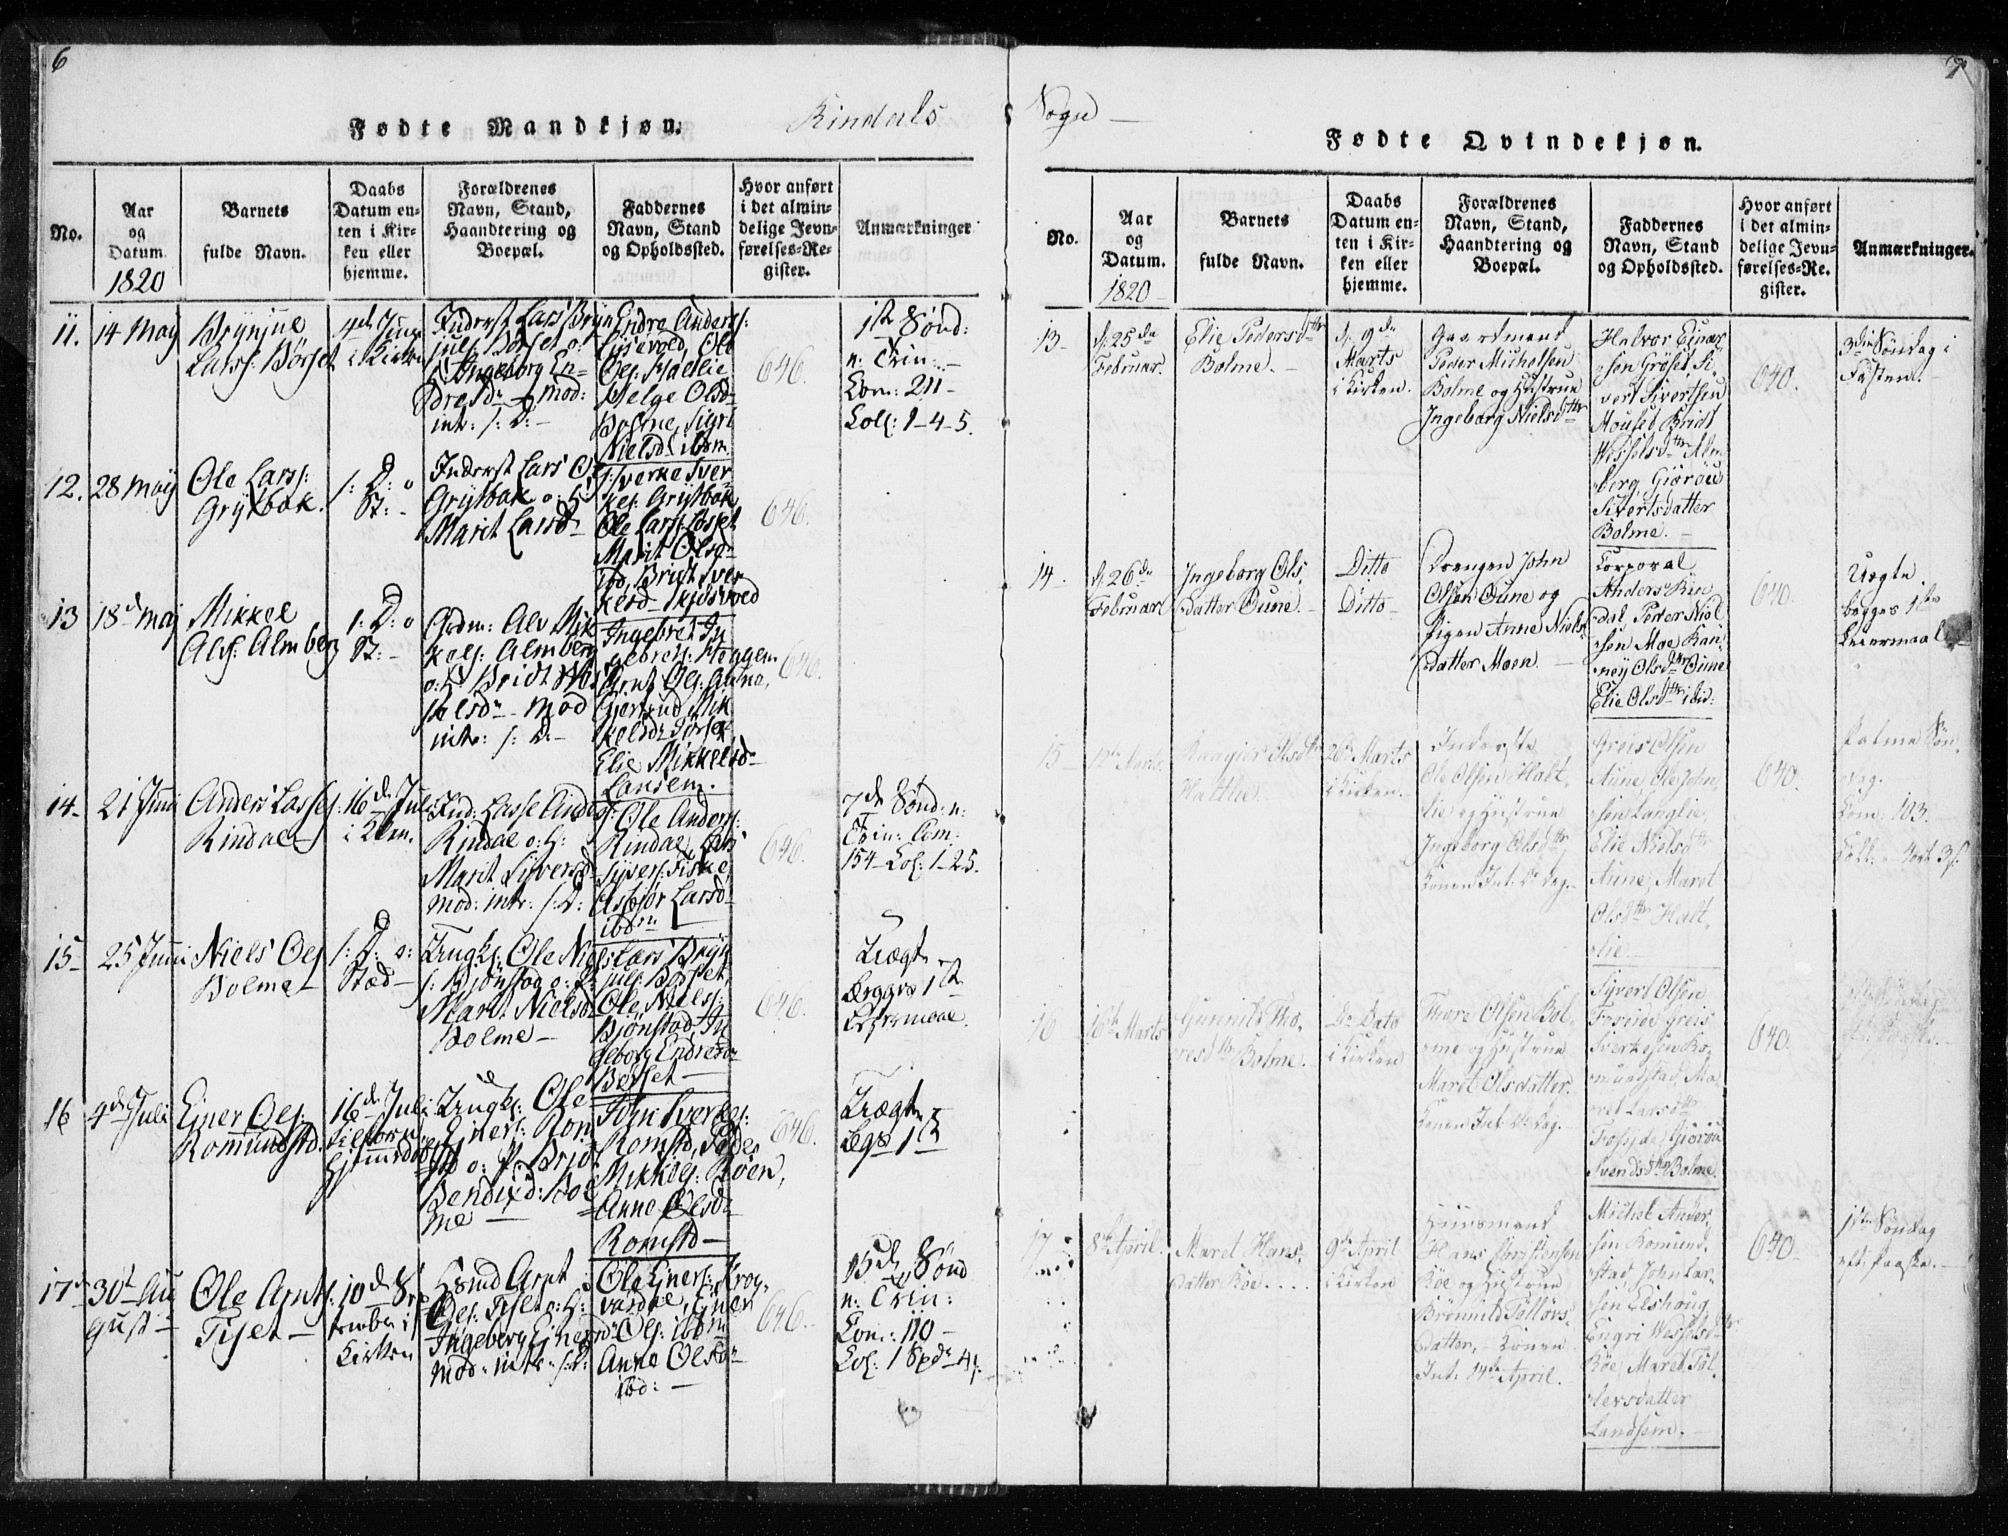 6
Fødte Mandkjøn.
Rindals
No.
Aar
og
Datum
1820
Barnets
fulde Navn.
Daabs
Datum en-
ten i Kir-
ken eller
hjemme.
Forældrenes
Navn, Stand,
Haandtering og
Boepæl.
Faddernes
Navn, Stand
og Opholdssted.
Hvor anført
i det almin-
delige Jevn-
førelses-Re-
gister.
Anmærkninger
11.
14 May
Brynjue
Larss: Børset
4de Juny
i Kirken
Inderst Lars Bryn
julss: Børset o:
Ingeborg En-
dresdr - Mod:
intr: s: D: -
Endre Anders:
Ole
Helge Olsdr
Bolme, Sigri
Nielsdr ibdm.
646.
1ste Sønd:
n: Trin: -
Com: 211 -
Coll: 1-4-5.
12.
28 May
Ole Larss:
Grytbak.
s: D: o
St: -
Inderst Lars
Grytbak o: H:
Marit Larsdr
Sverke Sver
kes: Grytbak
Ole Larss:
Marit Olsdr
ibd, Bridt Sver
kelsdr
646.
13
18de May
Mikkel
Alfs: Almberg
s: D: o
St: -
Grdm: Alv Mik
kels: Almberg
o: H: Bridt Wes
selsdr - Mod
intr: s: D: -
Ingebret In
gebrets: Heggem
Arnt Ols: Aune,
Gjertrud Mik
kelsdr
Elie Mikkelsdr
Landsem.
646.
14.
21 Juni
Anders Lasses:
Rindal
16de Juli
i Kkn.
Ind: Lasse Anders:
Rindal o: H:
Marit Syversdr
Mod: intr: s: D:
Ole Anders:
Rindal, Lars
Syvers: Fiske
Asbjør Larsdr
ibdm
646.
7de Sønd: n:
Trin: Com:
154 - Col: 1-25.
15-
25 Juni
Niels Ols
Bolme
s: D: o:
Stæd -
Ungks: Ole Niels
s: Bjønstad o: P:
Marit Nielsdr
Bolme -
Lars Bryn
juls: Børset,
Ole Niels:
Bjønstad, In
geborg Endresdr
Børset -
646.
Uægte
Begges 1ste
Leiermaal.
16
4de Juli
Ejner Ols:
Romundstd.
16de Juli
Ungks: Ole
Ejners: Rom
std o: P: Bridt
Bendixd: Bol
me -
John Sverkes:
Romstd, Peder
Mikkels: Röen,
Anne Olsdr
Romstd -
646.
Uægte
Begs 1ste
17de
30te Au
gust -
Ole Arnts:
Tiset -
10de Sep
tember i
Kirken
Hsmd Arnt
Ols: Tiset o: H:
Ingeborg Ejnersdr
Mod: intr: s: D:
Ole Ejners: Krog,
Ejner
Ols: ibdm
Anne Olsdr
ibd: -
646.
15de Sønd
n: Trin:
Com: 110 -
Col: 1 Spdr 4 s.
Sogn -
7
Fødte Qvindekjøn.
No.
Aar
og
Datum.
1820 -
Barnets
fulde Navn.
Daabs
Datum en-
ten i Kir-
ken eller
hjemme.
Forældrenes
Navn, Stand,
Haandtering og
Boepæl.
Faddernes
Navn, Stand
og Opholdssted.
Hvor anført
i det almin-
delige Jevn-
førelses-Re-
gister.
Anmærkninger.
13 -
d: 25de
Februar.
Elie Pedersdtr
Bolme. -
d: 9de
Marts
i Kirken.
Gaardmand
Peder Michelsen
Bolme og Hustrue
Ingeborg Nielsdtr
Halvor Einar,
sen Grøset, Si,
vert Sivertsen
Bridt
Wesselsdtr Alm
berg, Giøröe
Sivertsdatter
Bolme. -
640.
3die Søndag i
Fasten. -
14 -
d: 26de
Februar
Ingeborg Ols,
datter Oune. -
Ditto
Ditto
Drengen John
Olsen Oune og
Pigen Anne Niels,
datter Moen. -
Corporal
Anders Rin
dal, Peder Niel
sen Moe, Ran,
nej Olsdtr Oune
Elie Olsdtr ibid:
640.
Uægte
begges 1ste
Leiermaal
15 -
12te Marts.
Olsdtr
Haltlie. -
26de Marts
i Kirken. -
Inderste
Ole Olsen Halt,
lie og Hustrue
Ingeborg Olsdtr,
Konen Int: Do Dag. -
Greis Olsen
Aune, Ole John,
sen Langlie,
Elie Nielsdtr
Aune, Maret
Olsdtr Halt,
lie. -
640.
Palme Søn,
dag.
Com: 103.
Coll: - 4ort 3 s.
16
16de Marts
Gunnild Tho,
resdtr Bolme.
Do Dato
i Kirken
Thore Olsen Bol,
me og Hustrue
Maret Olsdatter.
Konen Int: Do Dag. -
Sivert Olsen
Greis
Sverkesen Ro,
mundstad, Ma,
ret Larsdtr
Giøröe
Svendsdtr Bolme.
640.
17
8de April.
Maret Hans,
datter Röe. . . . .
9de April
i Kirken
Huusmand
Hans Christensen
Röe og Hustrue
Brønnild Tollevs,
datter, - Konen
Int: 14de April. -
Michel Ander,
sen Romund,
stad, John Lar,
sen Elshoug,
Engri Wesselsdtr
Röe, Maret Tol,
levsdatter
Landsem. -
640 -
1ste Søndag
eft: Paaske. -